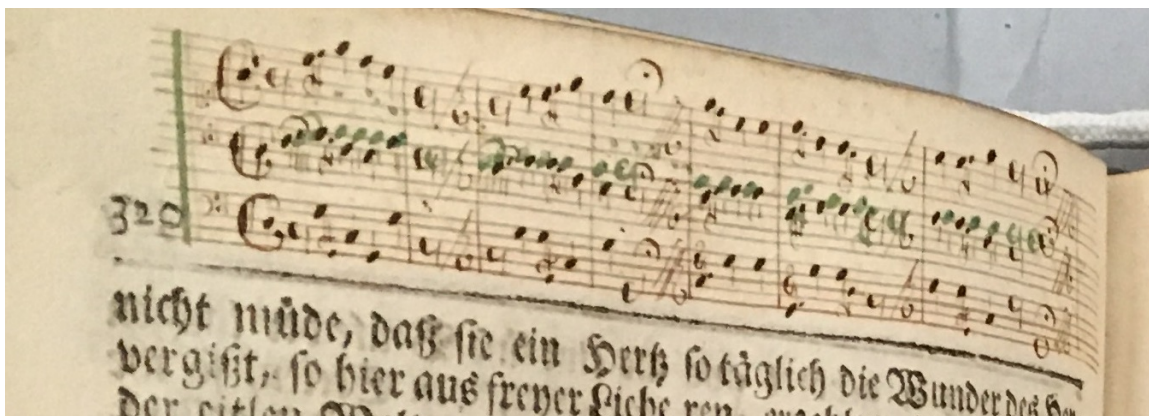 320
nicht müde, daß sie ein Hertz so täglich die Wunder des
vergißt, so hier aus freyer Liebe ren,
der eitlen